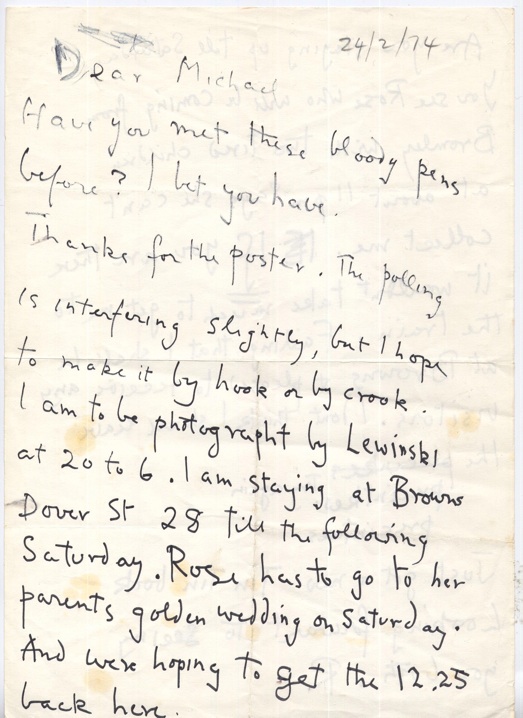 24/2/74
Dear Michael
Have you met these bloody pens
before? I bet you have.
Thanks for the poster. The polling
is interfering slightly, but I hope
to make it by hook or by crook.
I am to be photographt by Lewinski
at 20 to 6. I am staying at Browns
Dover St 28 till the following
Saturday. Rose has to go to her
parents golden wedding on Saturday.
And were hoping to get the 12.25
back here.